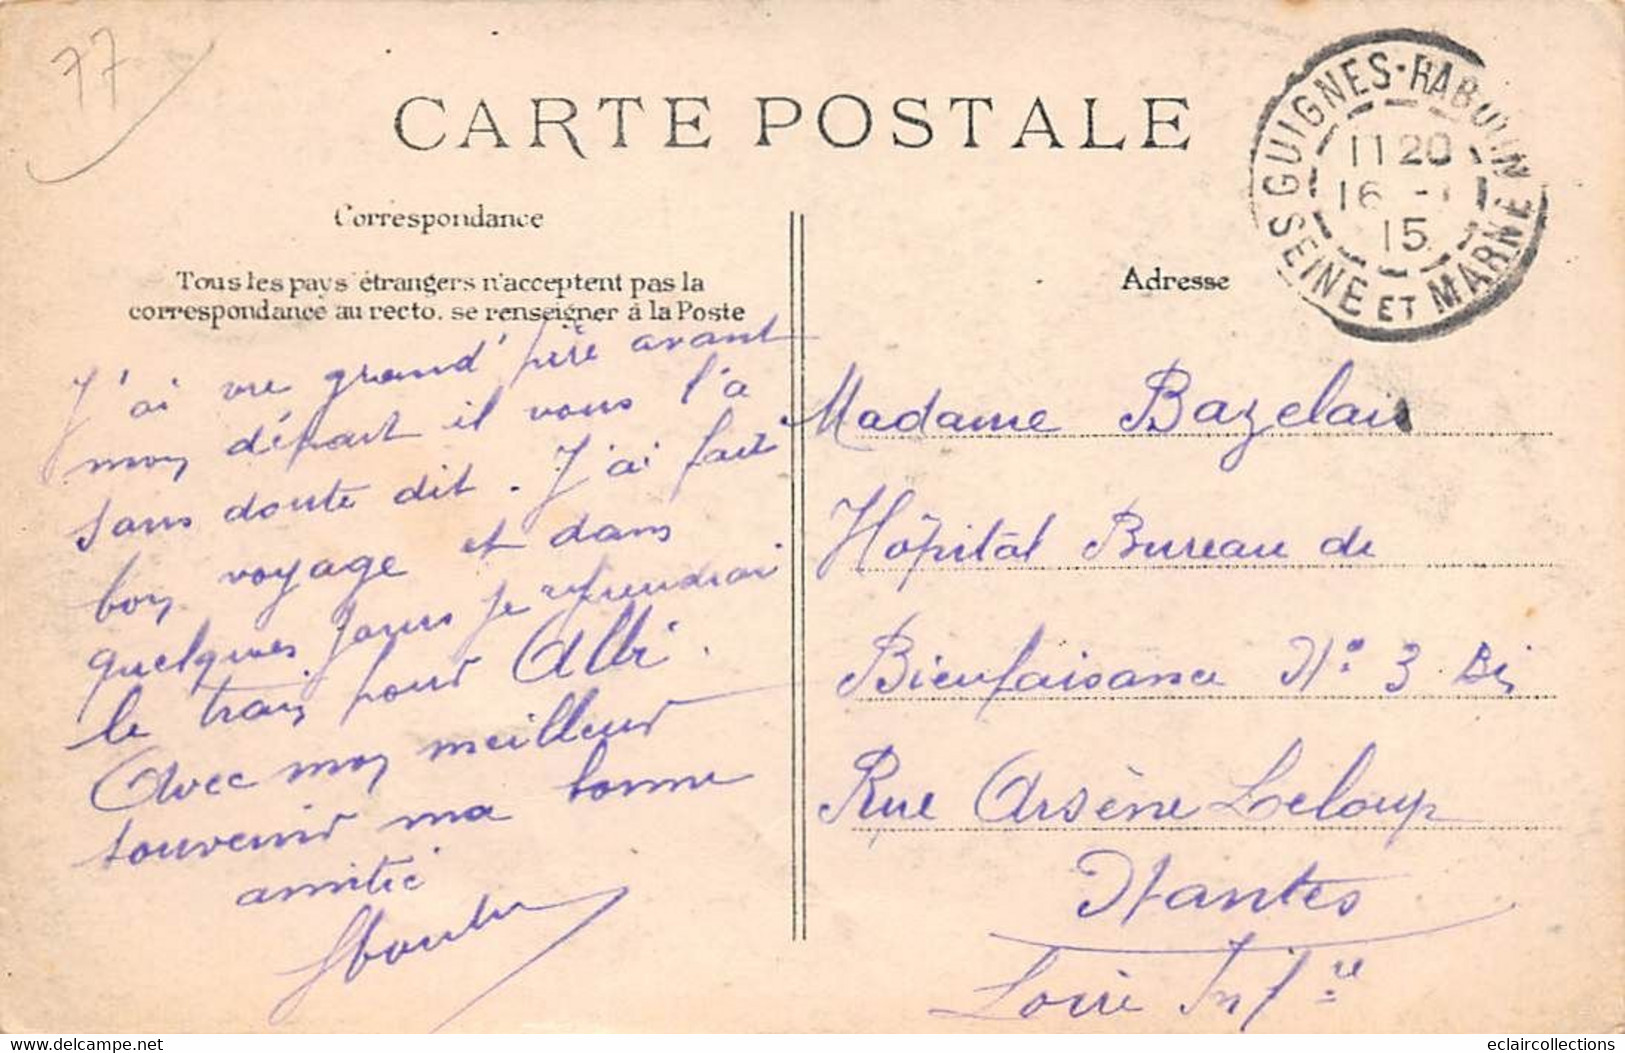 77
CARTE POSTALE
GUIGNES-RABUTIN
11 20
16 -
15
SEINE ET MARNE
Correspondance
Tous les pays étrangers n'acceptent pas la
correspondance au recto. se renseigner à la Poste
Adresse
J'ai vu grand' père avant
mon départ il vous l'a
sans doute dit. J'ai fait
bon voyage et dans
quelques jours je reprendrai
le train pour Albi.
Avec mon meilleur
souvenir ma bonne
amitié
Madame Bazelais
Hôpital Bureau de
Bienfaisance No 3 Bis
Rue Arsène Leloup
Nantes
Loire Infre
delcampe.net
eclaircollections